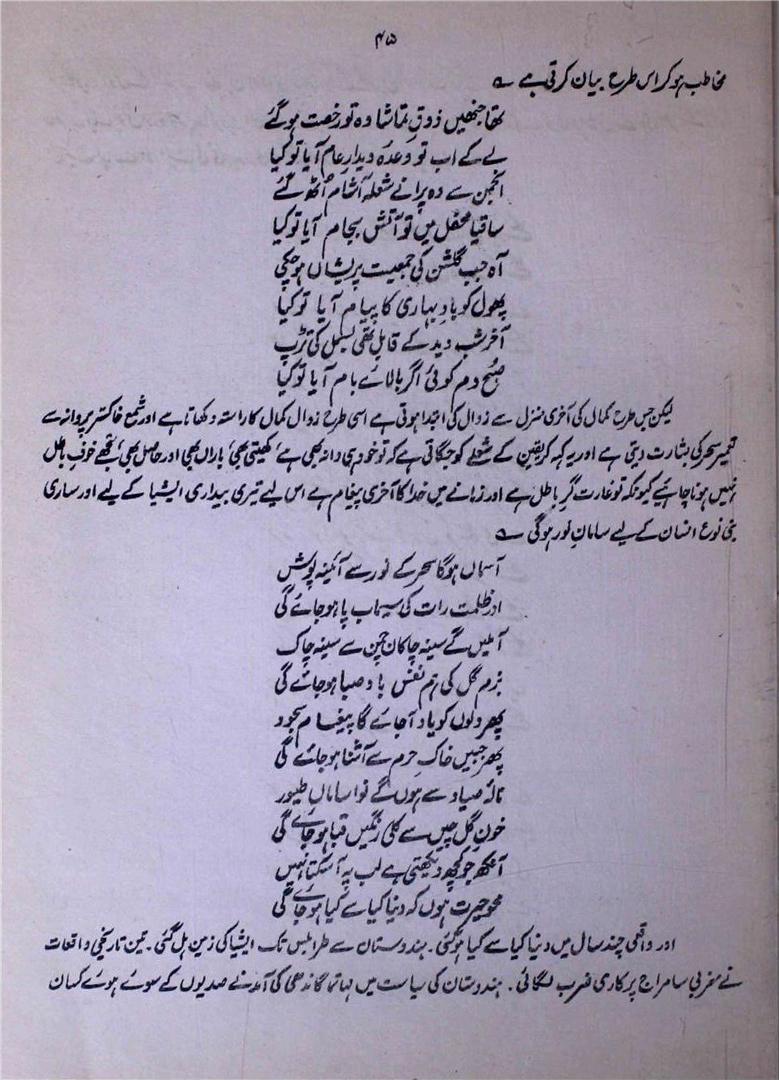 ۴۵
مخاطب ہو کر اس طرح بیان کرتی ہے ؎
تھا جنھیں ذوقِ تماشا وہ تو رخصت ہو گئے
لے کے اب تو وعدہ دیدارِ عام آیا تو کیا
انجمن سے وہ پرانے شعلہ آشام اُٹھ گئے
ساقیا محفل میں تو آتش بجام آیا تو کیا
آہ جب گلشن کی جمعیت پریشاں ہو چکی
پھول کو بادِ بہاری کا پیام آیا تو کیا
آخرِ شب دید کے قابل تھی بسمل کی تڑپ
صبح دم کوئی اگر بالائے بام آیا تو کیا
لیکن جس طرح کمال کی آخری منزل سے زوال کی ابتدا ہوتی ہے اسی طرح زوال کمال کا راستہ دکھاتا ہے اور شمع خاکسترِ پروانہ سے
تعمیرِ سحر کی بشارت دیتی ہے اور یہ کہہ کر یقین کے شعلے کو جگاتی ہے کہ تو خود ہی دانہ بھی ہے، کھیتی بھی، باراں بھی اور حاصل بھی، تجھے خوفِ باطل
نہیں ہونا چاہئیے کیونکہ تو غارت گرِ باطل ہے اور زمانے میں خدا کا آخری پیغام ہے اس لیے تیری بیداری ایشیا کے لیے اور ساری
بنی نوع انسان کے لیے سامانِ نور ہو گی ؎
آسماں ہو گا سحر کے نور سے آئینہ پوش
اور ظلمت رات کی سیماب پا ہو جائے گی
آملیں گے سینہ چاکانِ چمن سے سینہ چاک
بزمِ گل کی ہم نفس بادِ صبا ہو جائے گی
پھر دلوں کو یاد آ جائے گا پیغامِ سجود
پھر جبیں خاکِ حرم سے آشنا ہو جائے گی
نالۂ صیاد سے ہوں گے نوا ساماں طیور
خونِ گل چیں سے کلی رنگیں قبا ہو جائے گی
آنکھ جو کچھ دیکھتی ہے لب پہ آ سکتا نہیں
محوِ حیرت ہوں کہ دنیا کیا سے کیا ہو جائے گی
اور واقعی چند سال میں دنیا کیا سے کیا ہو گئی۔ ہندوستان سے طرابلس تک ایشیا کی زمین ہل گئی۔ تین تاریخی واقعات
نے مغربی سامراج پر کاری ضرب لگائی۔ ہندوستان کی سیاست میں مہاتما گاندھی کی آمد نے صدیوں کے سوئے ہوئے کسان